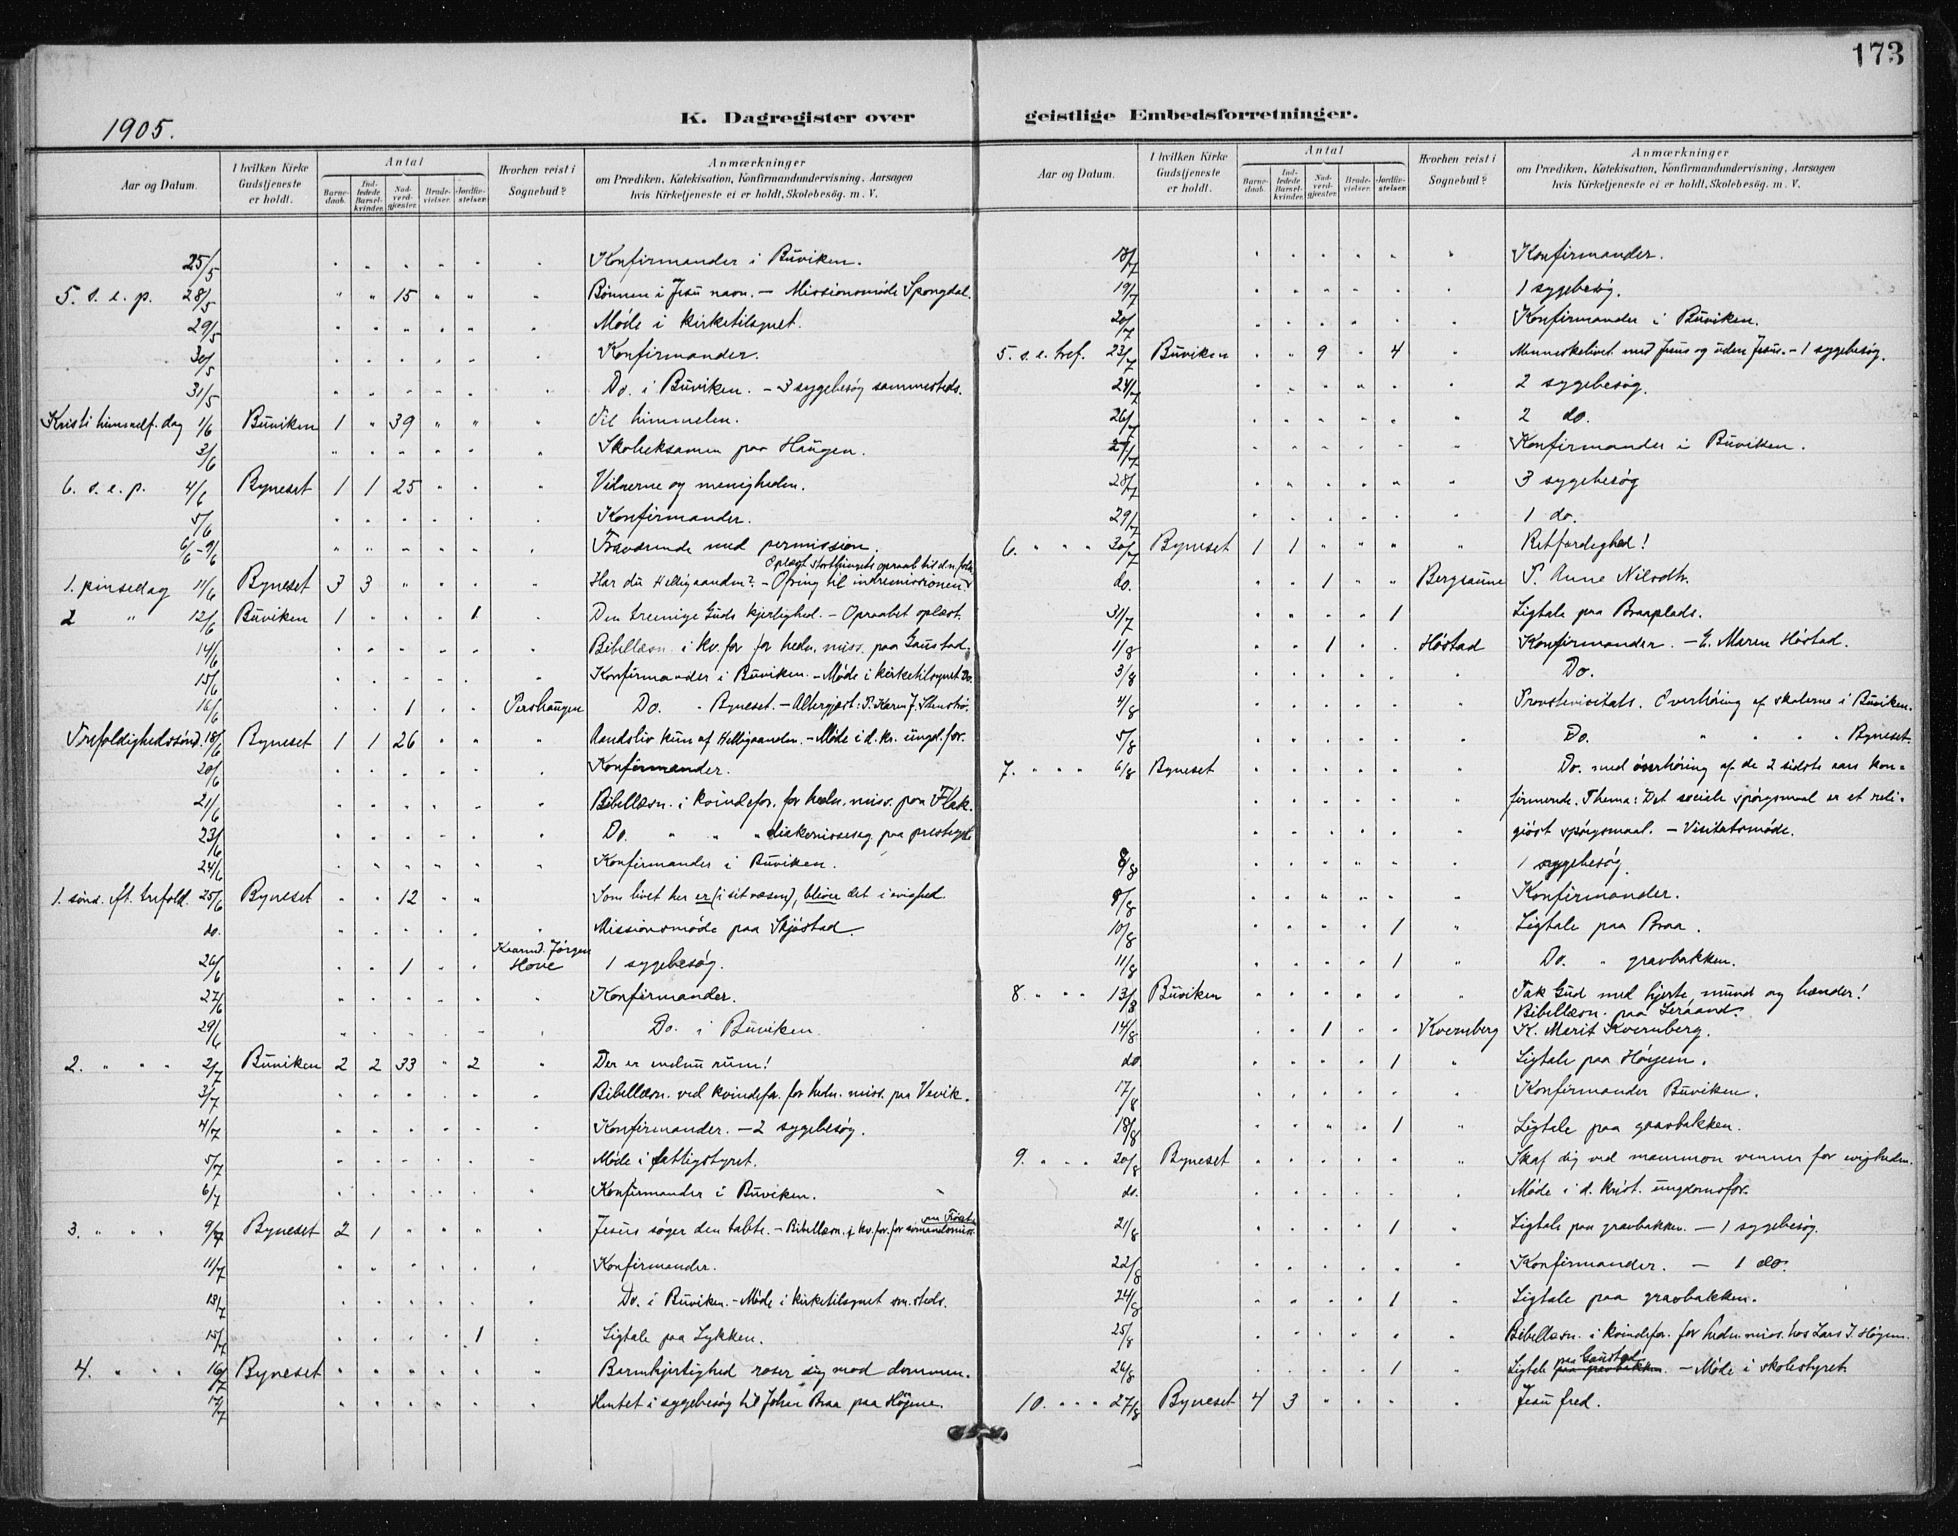 173
1905.
K. Dagregister over geistlige Embedsforretninger.
Aar og Datum. | I hvilken Kirke Gudstjeneste er holdt. | Antal: Barne-daab. Ind-ledede Barsel-kvinder. Nad-verd-gjæster. Brude-vielser. Jordfæ-stelser. | Hvorhen reist i Sognebud? | Anmærkninger om Prædiken, Katekisation, Konfirmandundervisning, Aarsagen hvis Kirketjeneste ei er holdt, Skolebesøg. m. V.
25/5 Konfirmander i Buviken.
5. s. e. p. 28/5 " " 15 " " " Bønnen i Jesu navn. — Missionsmøde Spongdal.
29/5 Møde i kirketilsynet.
30/5 Konfirmander.
31/5 Do. i Buviken. — 3 sygebesøg sammesteds.
Kristi himmelf. dag 1/6 Buviken 1 " 39 " " " Til himmelen.
3/6 Skoleeksamen paa Haugen.
6. s. e. p. 4/6 Byneset 1 1 25 " " " Vidnerne og menigheden.
5/6 Konfirmander.
6/6-9/6 Fraværende med permission.
Oplæst storthingets opraab til d. n. folk.
1. pinsedag 11/6 Byneset 3 3 " " " " Har du Helligaanden? — Ofring til indremissionen
2 " 12/6 Buviken 1 " " " 1 " Den treenige Guds kjerlighed. — Opraabet oplæst.
14/6 Bibellæsn. i kv. for for hedn. miss. paa Gaustad.
15/6 Konfirmander i Buviken. — Møde i kirketilsynet Do.
16/6 " " 1 " " Pershaugen Do. " Byneset. — Altergjæst: P. Karen J.
Trefoldighedssønd. 18/6 Byneset 1 1 26 " " " Aandsliv kun af Helligaanden. — Møde i d. kr. ungd. for.
20/6 Konfirmander.
21/6 Bibellæsn. i kvindefor. for hedn. miss. paa Flak.
23/6 Do. " " " diakonissesag paa prestegd.
24/6 Konfirmander i Buviken.
1. sønd. eft. trefold. 25/6 Byneset " " 12 " " Som livet her er (i sit væsen), bliver det i evighed.
do. Missionsmøde paa Skjøstad.
26/6 " " 1 " " Kaarmd. Jørgen Hove 1 sygebesøg.
27/6 Konfirmander.
29/6 Do. i Buviken.
2. " " " 2/7 Buviken 2 2 33 " 2 " Der er endnu rum!
3/7 Bibellæsn. ved kvindefor. for hedn. miss. paa Vevik.
4/7 Konfirmander. — 2 sygebesøg.
5/7 Møde i fattigstyret.
6/7 Konfirmander i Buviken.
3. " " " 9/7 Byneset 2 1 " " " " Jesus søger den tabte. — Bibellæsn. i kv. for. for
11/7 Konfirmander.
13/7 Do. i Buviken. — Møde i kirketilsynet sm. steds.
15/7 " " " " 1 " Ligtale paa Lykken.
4. " " " 16/7 Byneset " " " " " " Barmhjertighed roser sig mod dommen.
17/7 Hentet i sygebesøg til Johan Braa paa
Aar og Datum. | I hvilken Kirke Gudstjeneste er holdt. | Antal: Barne-daab. Ind-ledede Barsel-kvinder. Nad-verd-gjæster. Brude-vielser. Jordfæ-stelser. | Hvorhen reist i Sognebud? | Anmærkninger om Prædiken, Katekisation, Konfirmandundervisning, Aarsagen hvis Kirketjeneste ei er holdt, Skolebesøg. m. V.
18/7 Konfirmander.
19/7 1 sygebesøg.
20/7 Konfirmander i Buviken.
5. s. e. tref. 23/7 Buviken " " 9 " 4 " Menneskelivet med Jesus og uden Jesus. — 1 sygebesøg.
24/7 2 sygebesøg.
26/7 2 do.
27/7 Konfirmander i Buviken.
28/7 3 sygebesøg
29/7 1 do.
6. " " " 30/7 Byneset 1 1 " " " " Retfærdighed!
do. " " 1 " " Bergsaune P. Anne Nilsdtr.
31/7 " " " " 1 Ligtale paa Braaplads.
1/8 " " 1 " " Høstad Konfirmander. — E. Maren Høstad.
3/8 Do.
4/8 Provstevisitats. Overhøring af skolerne i Buviken.
5/8 Do. " " " " Byneset.
7. " " " 6/8 Byneset Do. med overhøring af de 2 sidste aars kon=
firmerede. Thema: Det sociale spørgsmaal er et reli=
giøst spørgsmaal. — Visitatsmøde.
8/8 1 sygebesøg.
9/8 Konfirmander.
10/8 " " " " 1 " Ligtale paa Braa.
11/8 " " " " 1 " Do. " gravbakken.
8. " " " 13/8 Buviken Tak Gud med hjerte, mund og hænder!
Bibellæsn. paa Leraand.
14/8 " " 1 " " Kvernberg K. Marit Kvernberg.
do. " " " " 1 " Ligtale paa Høyem.
17/8 Konfirmander Buviken.
18/8 " " " " 1 " Ligtale paa gravbakken.
9. " " " 20/8 Byneset Skaf dig ved mammon venner for evigheden.
do. Møde i d. krist. ungdomsfor.
21/8 " " " " 1 " Ligtale paa gravbakken. — 1 sygebesøg.
22/8 Konfirmander. — 1 do.
24/8 " " " " 1 " Ligtale paa gravbakken.
25/8 Bibellæsn. i kvindefor. for hedn. miss. hos Lars J. Høgem.
26/8 " " " " 1 " Ligtale paa Gaustad. — Møde i skolestyret.
10. " " " 27/8 Byneset 4 3 " " " " Jesu fred.